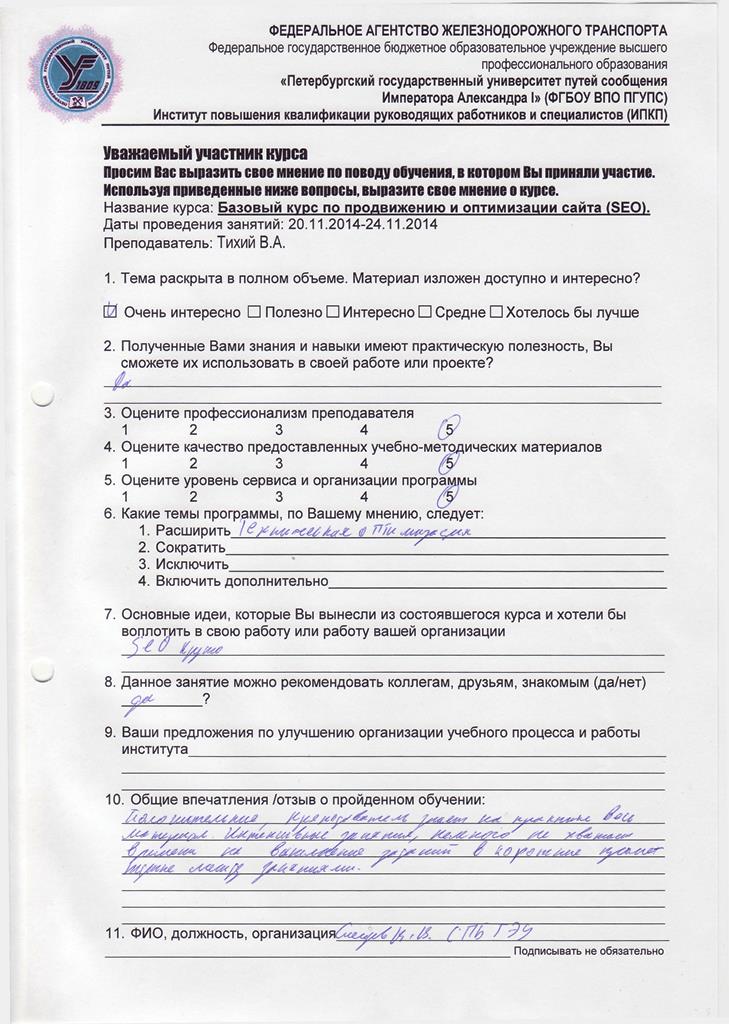 ФЕДЕРАЛЬНОЕ АГЕНТСТВО ЖЕЛЕЗНОДОРОЖНОГО ТРАНСПОРТА
Федеральное государственное бюджетное образовательное учреждение высшего
профессионального образования
«Петербургский государственный университет путей сообщения
Императора Александра I» (ФГБОУ ВПО ПГУПС)
Институт повышения квалификации руководящих работников и специалистов (ИПКП)
1809
Уважаемый участник курса
Просим Вас выразить свое мнение по поводу обучения, в котором Вы приняли участие.
Используя приведенные ниже вопросы, выразите свое мнение о курсе.
Название курса: Базовый курс по продвижению и оптимизации сайта (SEO).
Даты проведения занятий: 20.11.2014-24.11.2014
Преподаватель: Тихий В.А.
1. Тема раскрыта в полном объеме. Материал изложен доступно и интересно?
☑ Очень интересно ☐ Полезно ☐ Интересно ☐ Средне ☐ Хотелось бы лучше
2. Полученные Вами знания и навыки имеют практическую полезность, Вы
сможете их использовать в своей работе или проекте?
Да
3. Оцените профессионализм преподавателя
1 2 3 4 5
4. Оцените качество предоставленных учебно-методических материалов
1 2 3 4 5
5. Оцените уровень сервиса и организации программы
1 2 3 4 5
6. Какие темы программы, по Вашему мнению, следует:
1. Расширить Техническая оптимизация
2. Сократить
3. Исключить
4. Включить дополнительно
7. Основные идеи, которые Вы вынесли из состоявшегося курса и хотели бы
воплотить в свою работу или работу вашей организации
SEO круто
8. Данное занятие можно рекомендовать коллегам, друзьям, знакомым (да/нет)
да ?
9. Ваши предложения по улучшению организации учебного процесса и работы
института
10. Общие впечатления /отзыв о пройденном обучении:
Положительные, преподаватель знает на практике весь
материал. Интенсивные занятия, немного не хватает
времени на выполнение заданий в короткие промежутки
между занятиями.
11. ФИО, должность, организация СПБГЭУ
Подписывать не обязательно